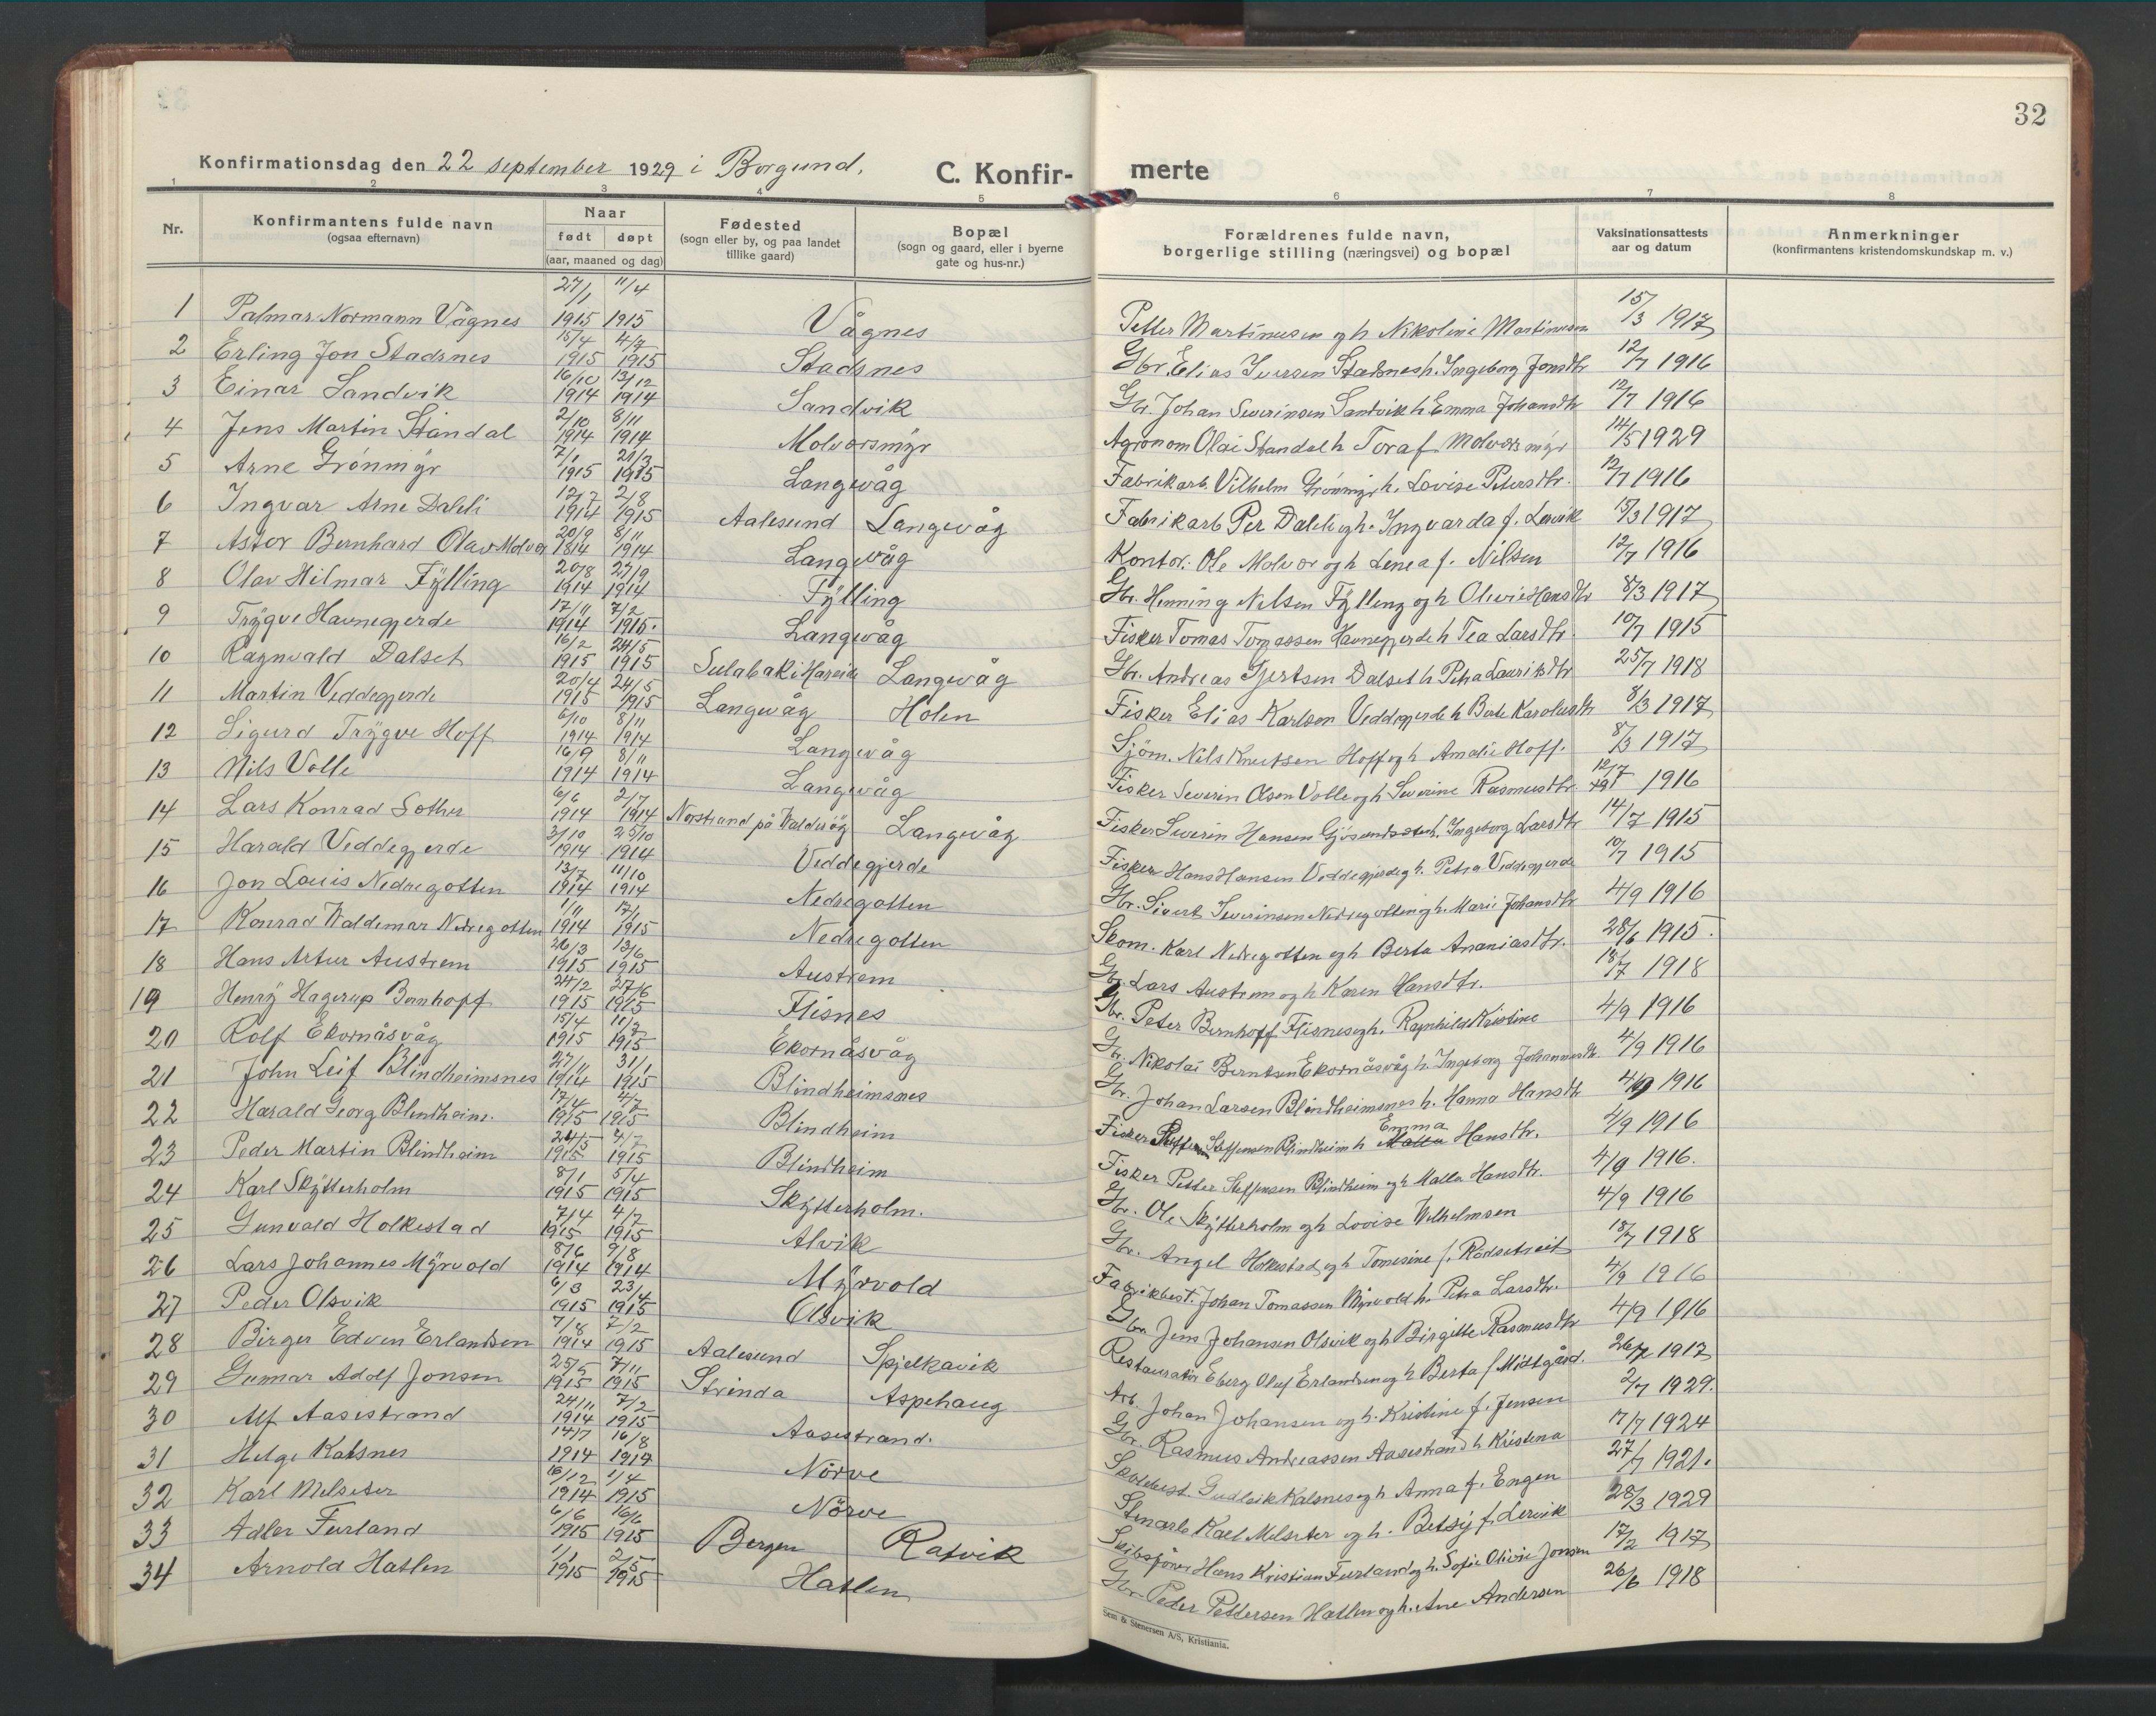 32
Konfirmationsdag den 22 september 1929 i Borgund.
C. Konfir-merte
1 2 3 4 5 6 7 8
Nr. | Konfirmantens fulde navn (ogsaa efternavn) | Naar født døpt (aar, maaned og dag) | Fødested (sogn eller by, og paa landet tillike gaard) | Bopæl (sogn og gaard, eller i byerne gate og hus-nr.) | Forældrenes fulde navn, borgerlige stilling (næringsvei) og bopæl | Vaksinationsattests aar og datum | Anmerkninger (konfirmantens kristendomskundskap m. v.)
1 Palmar Normann Vågnes 27/1 1915 11/4 1915 Vågnes Petter Martinusen og h Nikoline Martinusen 15/3 1917
2 Erling Jon Stadsnes 15/4 1915 4/7 1915 Stadsnes Gbr. Elias Iversen Stadsnes h. Ingeborg Jonsdtr 12/7 1916
3 Einar Sandvik 16/10 1914 13/12 1914 Sandvik Gbr. Johan Severinsen Sandvik h Emma Johansdtr 12/7 1916
4 Jens Martin Standal 2/10 1914 8/11 1914 Molværsmyr Agronom Olai Standal h Tora f Molværsmyr 14/5 1929
5 Arne Grönmyr 7/1 1915 21/3 1915 Langevåg Fabrikarb. Vilhelm Grönmyr h. Lovise Petersdtr. 12/7 1916
6 Ingvar Arne Dahli 12/7 1914 2/8 1915 Aalesund Langevåg Fabrikarb Per Dahli og h. Ingvarda f. Lervik 15/3 1917
7 Astor Bernhard Olav Molvær 20/9 1814 8/11 1914 Langevåg Kontor. Ole Molvær og h Lenea f. Nilsen 12/7 1916
8 Olav Hilmar Fylling 20/8 1914 27/9 1914 Fylling Gbr. Henning Nelsen Fylling og h Olivie Hansdtr 8/3 1917
9 Trygve Havnegjerde 17/11 1914 7/2 1915. Langevåg Fisker Tomas Tomassen Havnegjerde h Tea Larsdtr. 10/7 1915
10 Ragnvald Dalset 16/2 1915 24/5 1915 Sulabak i Hareide Langevåg Gbr. Andreas Gjertsen Dalset h Petra Lauriksdtr 25/7 1918
11 Martin Veddegjerde 20/4 1915 24/5 1915 Langevåg Holen Fisker Elias Karlsen Veddegjerde h Berte Karolusdtr 8/3 1917
12 Sigurd Trygve Hoff 6/10 1914 8/11 1914 Langevåg Sjöm. Nils Knutsen Hoff og h Amalie Hoff. 8/3 1917
13 Nils Volle 16/9 1914 8/11 1914 Langevåg Fisker Severin Olsen Volle og h Severine Rasmusdtr. 12/7 1916
14 Lars Konrad Sother 6/6 1914 2/7 1914 Norstrand på Walderöy Langevåg Fisker Severin Hansen h. Ingeborg Larsdtr 14/7 1915
15 Harald Veddegjerde 3/10 1914 25/10 1914 Veddegjerde Fisker Hans Hansen Veddegjerde og h. Petra Veddegjerde 10/7 1915
16 Jon Louis Nedregotten 13/7 1914 11/10 1914 Nedregotten Gbr. Sivert Severinsen Nedregotten og h. Marie Johansdtr 4/9 1916
17 Konrad Waldemar Nedregotten 1/11 1914 17/1 1915 Nedregotten Skom. Karl Nedregotten og h Berta Ananiasdtr. 28/6 1915.
18 Hans Artur Austrem 26/3 1915 13/6 1915 Austrem Gbr. Lars Austrem og h Karen Hansdtr. 18/7 1918
19 Henry Hagerup Bernhoff 24/2 1915 27/6 1915 Flisnes Gbr. Peter Bernhoff Flisnes og h. Ragnhild Kristine 4/9 1916
20 Rolf Ekornåsvåg 15/4 1915 11/7 1915 Ekornåsvåg Gbr. Nikolai Berntsen Ekornåsvåg h. Ingeborg Johannesdtr. 4/9 1916
21 John Leif Blindheimsnes 27/11 1914 31/1 1915 Blindheimsnes Gbr. Johan Larsen Blindheimsnes h. Hanna Hansdtr 4/9 1916
22 Harald Georg Blindheim. 17/4 1915 4/7 1915 Blindheim Fisker Steffen Steffensen Blindheim h Malla Emma Hansdtr. 4/9 1916
23 Peder Martin Blindheim 24/5 1915 4/7 1915 Blindheim Fisker Petter Steffensen Blindheim og h Malla Hansdtr. 4/9 1916.
24 Karl Skytterholm 8/1 1915 5/4 1915 Skytterholm. Gbr. Ole Skytterholm og h Lovise Wilhelmsen 4/9 1916
25 Gunvald Holkestad 7/4 1915 4/7 1915 Alvik Gbr. Angel Holkestad og h Tomesine f. Rödsetreit 18/7 1918
26 Lars Johannes Myrvold 8/6 1914 9/8 1914 Myrvold Fabrikbest. Johan Tomassen Myrvold h. Petra Larsdtr. 4/9 1916
27 Peder Olsvik 6/3 1915 23/4 1915 Olsvik Gbr Jens Johansen Olsvik og h Birgitte Rasmusdtr 4/9 1916
28 Birger Edven Erlandsen 7/8 1914 7/2 1915 Aalesund Spjelkavik Restauratör Eberg Olaf Erlandsen og h Berta f Midtgård. 26/7 1917
29 Gunnar Adolf Jonsen 25/5 1915 7/11 1915 Strinda Aspehaug Arb. Johan Johansen og h. Kristine f. Jensen 2/7 1929.
30 Alf Aasestrand 24/11 1914 7/2 1915 Aasestrand. Gbr. Rasmus Andreassen Aasestrand h Kristena 17/7 1924
31 Helge Kalsnes 14/7 1914 16/8 1914 Nörve Skolebest. Gudleik Kalsnes og h Anna f. Engen 27/7 1921.
32 Karl Melseter 16/12 1914 1/4 1915 Nörve Stenarb Karl Melseter og h. Betsy f. Lervik 28/3 1929
33 Adler Furland 6/6 1915 16/6 1915 Bergen Ratvik Skibsförer Hans Kristian Furland og h. Sofie Olivie Jonsen 17/2 1917
34 Arnold Hatlen 1/1 1915 2/5 1915 Hatlen Gbr. Peder Pettersen Hatlen og h. Ane Andersen 26/6 1918
Sem & Stenersen A/S, Kristiania.